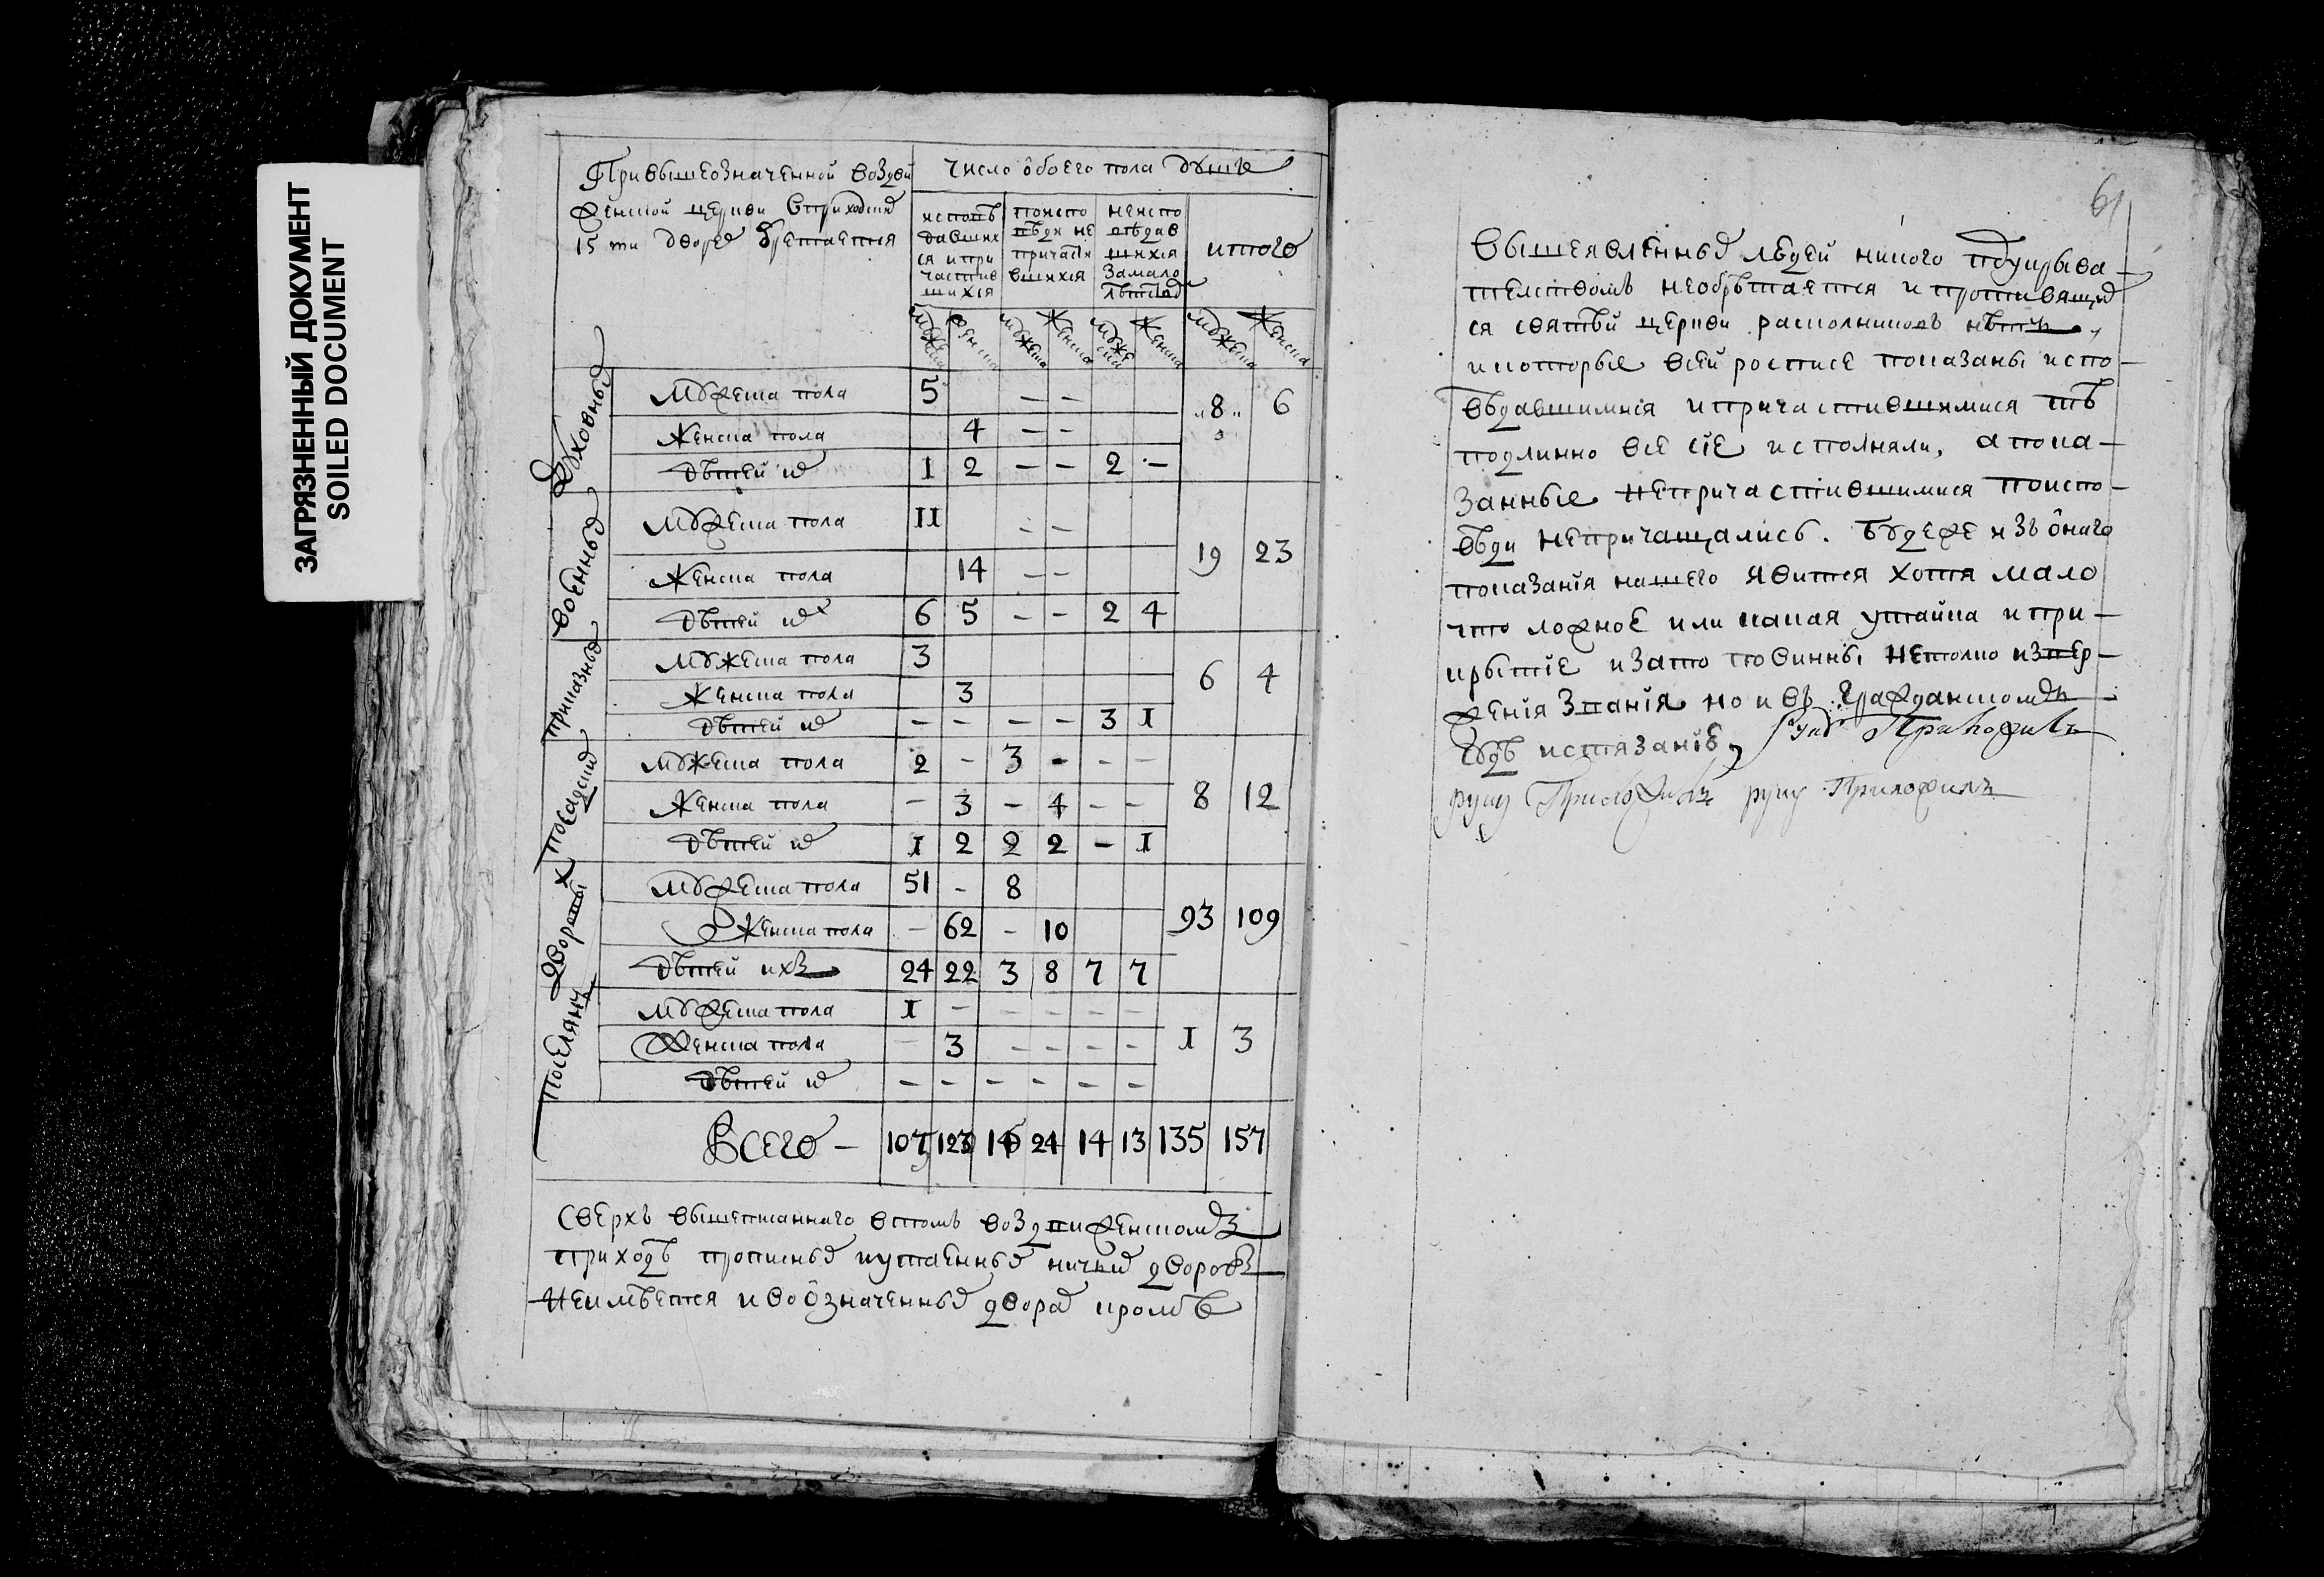 ЗАГРЯЗНЕННЫЙ ДОКУМЕНТ
SOILED DOCUMENT
Привышеозначенной воздви
женской церкви вприходѣ
15 ти дворѣх
число обоего пола душъ
исповѣ
давших
ся и при
частив
шихся
поиспо
вѣди не
причасти
вшихся
неиспо
вѣдав
шихся
замало
лѣтствомъ
итого
мужеска
женска
мужеска
женска
мужеска
женска
мужеска
женска
духовных
мужеска пола 5 – – 8 6
женска пола 4 – –
дѣтей их 1 2 – – 2 –
военных
мужеска пола 11 – – 19 23
женска пола 14 – –
дѣтей их 6 5 – – 2 4
приказных
мужеска пола 3 6 4
женска пола 3
дѣтей их – – – – 3 1
посадских
мужеска пола 2 – 3 – – – 8 12
женска пола – 3 – 4 – –
дѣтей их 1 2 2 2 – 1
дворовых
мужеска пола 51 – 8 93 109
женска пола – 62 – 10
дѣтей ихъ 24 22 3 8 7 7
поселянъ
мужеска пола 1 – – – – – 1 3
женска пола – 3 – – – –
дѣтей их – – – – – –
Всего – 107 123 24 14 13 135 157
Сверхъ вышеписаннаго втомъ воздвиженскомъ
приходѣ прописных иутаенных ничьих дворовъ
неимѣется и воозначенных дворах кромѣ
61
вышеявленных людей никого подукрыва–
телствомъ необрѣтается и противящих
ся святѣй церкви расколниковъ нѣтъ
и которые всей росписе показаны испо–
вѣдавшимися ипричастившимися тѣ
подлинно все сіе исполняли, а пока–
занные непричастившимися поиспо–
вѣди непричащались. Будеже изъ онаго
показанія нашего явится хотя мало
что ложное или какая утайка и при–
крытіе изато повинны нетокмо извер–
женія званія но и въ гражданскомъ
судѣ истязанію, руку Приложилъ
руку Приложилъ руку Приложилъ